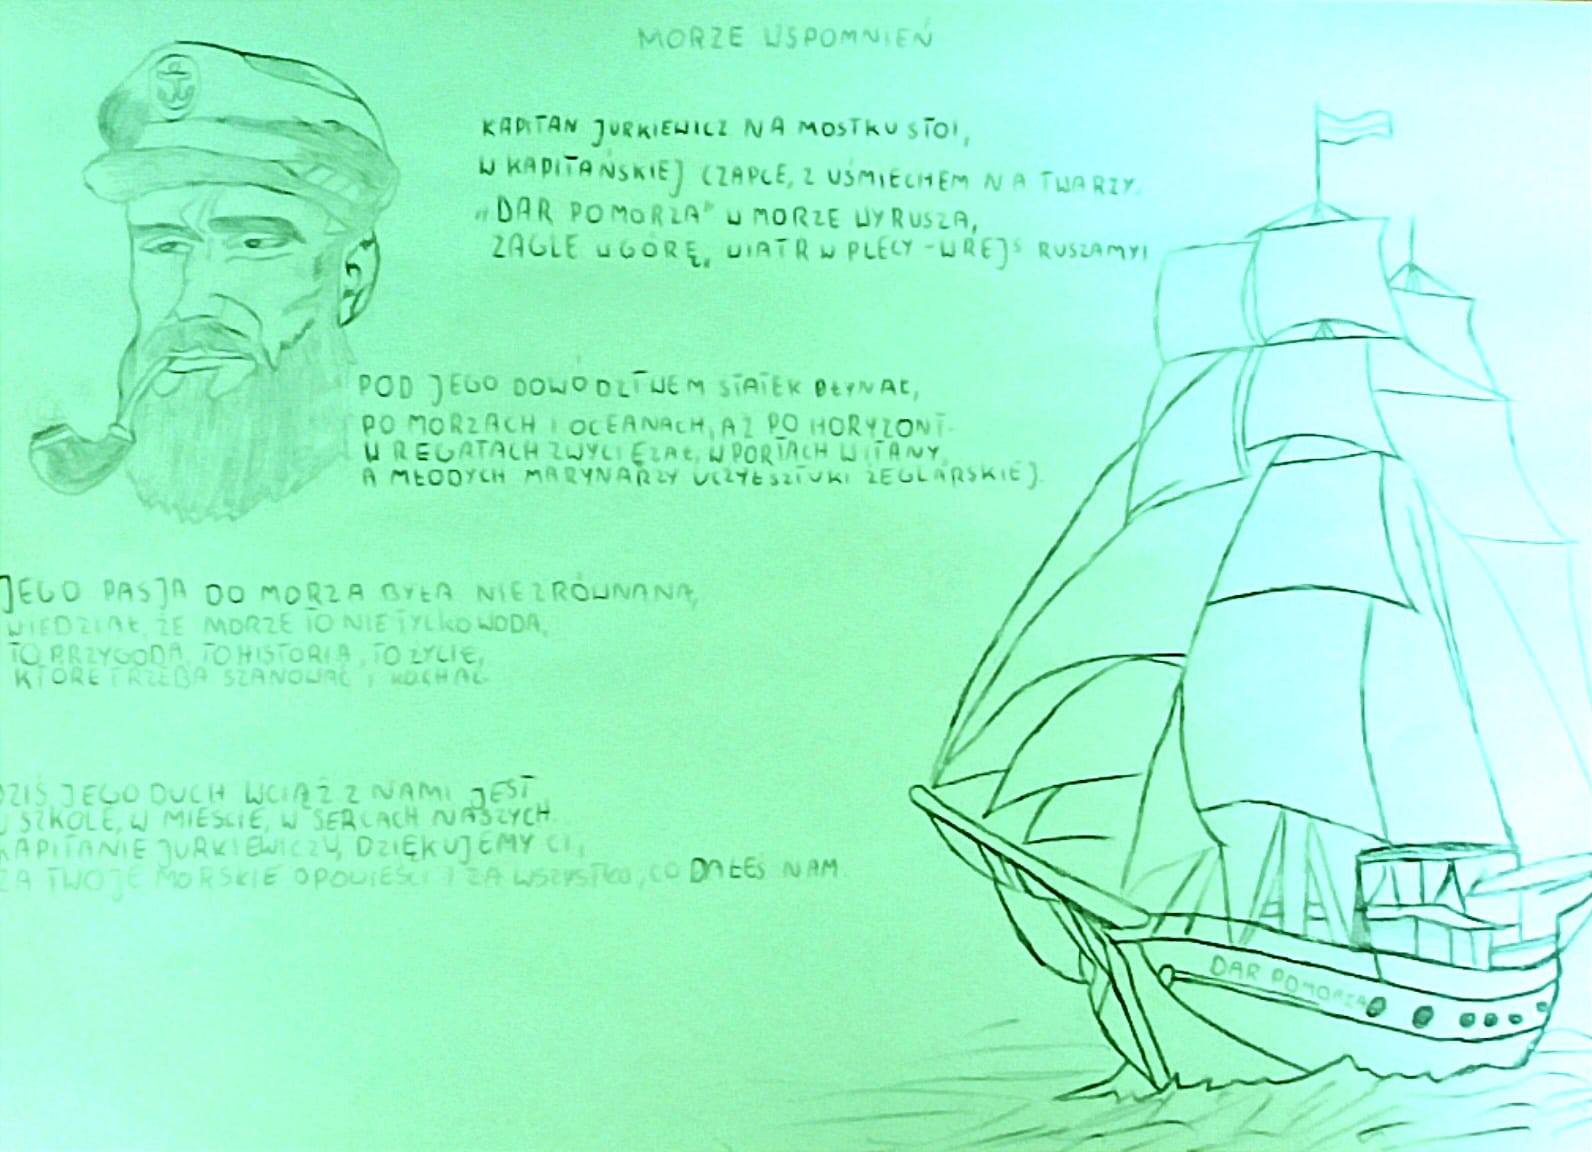 MORZE WSPOMNIEŃ
KAPITAN JURKIEWICZ NA MOSTKU STOI,
W KAPITAŃSKIEJ CZAPCE, Z UŚMIECHEM NA TWARZY.
„DAR POMORZA" W MORZE WYRUSZA,
ŻAGLE W GÓRĘ, WIATR W PLECY - W REJS RUSZAMY!
POD JEGO DOWÓDZTWEM STATEK PŁYNĄŁ,
PO MORZACH I OCEANACH, AŻ PO HORYZONT.
W REGATACH ZWYCIĘŻAŁ, W PORTACH WITANY,
A MŁODYCH MARYNARZY UCZYŁ SZTUKI ŻEGLARSKIEJ.
JEGO PASJA DO MORZA BYŁA NIEZRÓWNANA,
WIEDZIAŁ, ŻE MORZE TO NIE TYLKO WODA,
TO PRZYGODA, TO HISTORIA, TO ŻYCIE,
KTÓRE TRZEBA SZANOWAĆ I KOCHAĆ.
DZIŚ JEGO DUCH WCIĄŻ Z NAMI JEST
W SZKOLE, W MIEŚCIE, W SERCACH NASZYCH.
KAPITANIE JURKIEWICZU, DZIĘKUJEMY CI,
ZA TWOJE MORSKIE OPOWIEŚCI I ZA WSZYSTKO, CO DAŁEŚ NAM.
DAR POMORZA